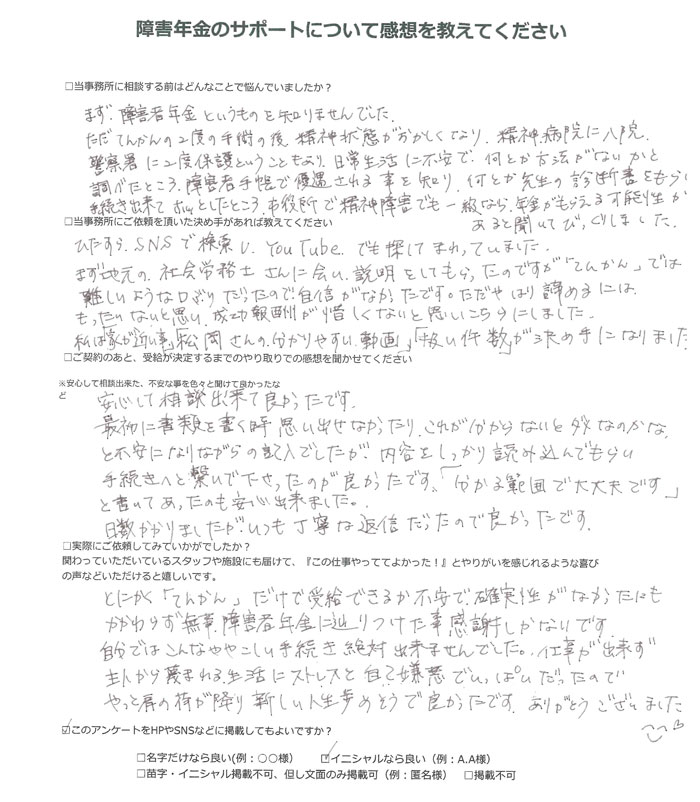 障害年金のサポートについて感想を教えてください
□当事務所に相談する前はどんなことで悩んでいましたか？
まず、障害者年金というものを知りませんでした。
ただてんかんの2度の手術の後、精神状態がおかしくなり、精神病院に入院。
警察署に2度保護ということもあり、日常生活に不安で、何とか方法がないかと
調べたところ、障害者手帳で優遇される事を知り、何とか先生の診断書をもらい
手続き出来てホッとしたところ、お役所で精神障害でも一級なら、年金がもらえる可能性が
あると聞いてびっくりしました。
□当事務所にご依頼を頂いた決め手があれば教えてください
ひたすら、SNSで検索し、YouTube.でも探してまわっていました。
まず地元の、社会労務士さんに会い、説明をしてもらったのですが「てんかん」では
難しいような口ぶりだったので自信がなかったです。ただやはり諦めるには、
もったいないと思い、成功報酬が惜しくないと思いこちらにしました。
私は「家が近い事」「松岡さんの分かりやすい動画」「扱い件数」が決め手になりました
□ご契約のあと、受給が決定するまでのやり取りでの感想を聞かせてください
※安心して相談出来た、不安な事を色々と聞けて良かったな
ど
安心して相談出来て良かったです。
最初に書類を書く時 思い出せなかったり、これが分からないとダメなのかな、
と不安になりながらの記入でしたが、内容をしっかり読み込んでもらい
手続きへと繋いで下さったのが良かったです、「分かる範囲で大丈夫です」
と書いてあったのも安心出来ました。
日数かかりましたが、いつも丁寧な返信だったので良かったです。
□実際にご依頼してみていかがでしたか？
関わっていただいているスタッフや施設にも届けて、『この仕事やっててよかった！』とやりがいを感じれるような喜び
の声などいただけると嬉しいです。
とにかく「てんかん」だけで受給できるか不安で、確実性がなかったにも
かかわらず無事、障害者年金に辿りつけた事 感謝しかないです。
自分ではこんなややこしい手続き絶対出来ませんでした。仕事が出来ず
主人から蔑まれる生活にストレスと自己嫌悪でいっぱいだったので
やっと肩の荷が降り新しい人生歩めそうで良かったです。ありがとうございました
☑このアンケートをHPやSNSなどに掲載してもよいですか？
□名字だけなら良い(例：○○様） ☑イニシャルなら良い（例：A.A様）
□苗字・イニシャル掲載不可、但し文面のみ掲載可（例：匿名様） □掲載不可